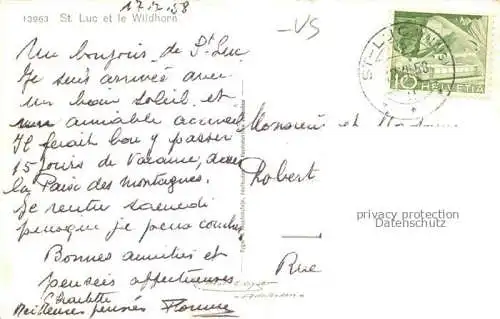 17.2.58
13963 St. Luc et le Wildhorn
-VS
Un bonjour de St Luc
Je suis arrivée avec
un beau soleil et
un aimable accueil
Il ferait bon y passer
15 jours de vacance, dans
la Paix des montagnes.
Je rentre samedi
puisque je peux
Bonnes amitiés et
pensées affectueuses
Charlotte
Meilleures pensées
ST-LUC
HELVETIA
10
Monsieur et
Robert
Rue
privacy protection
Datenschutz